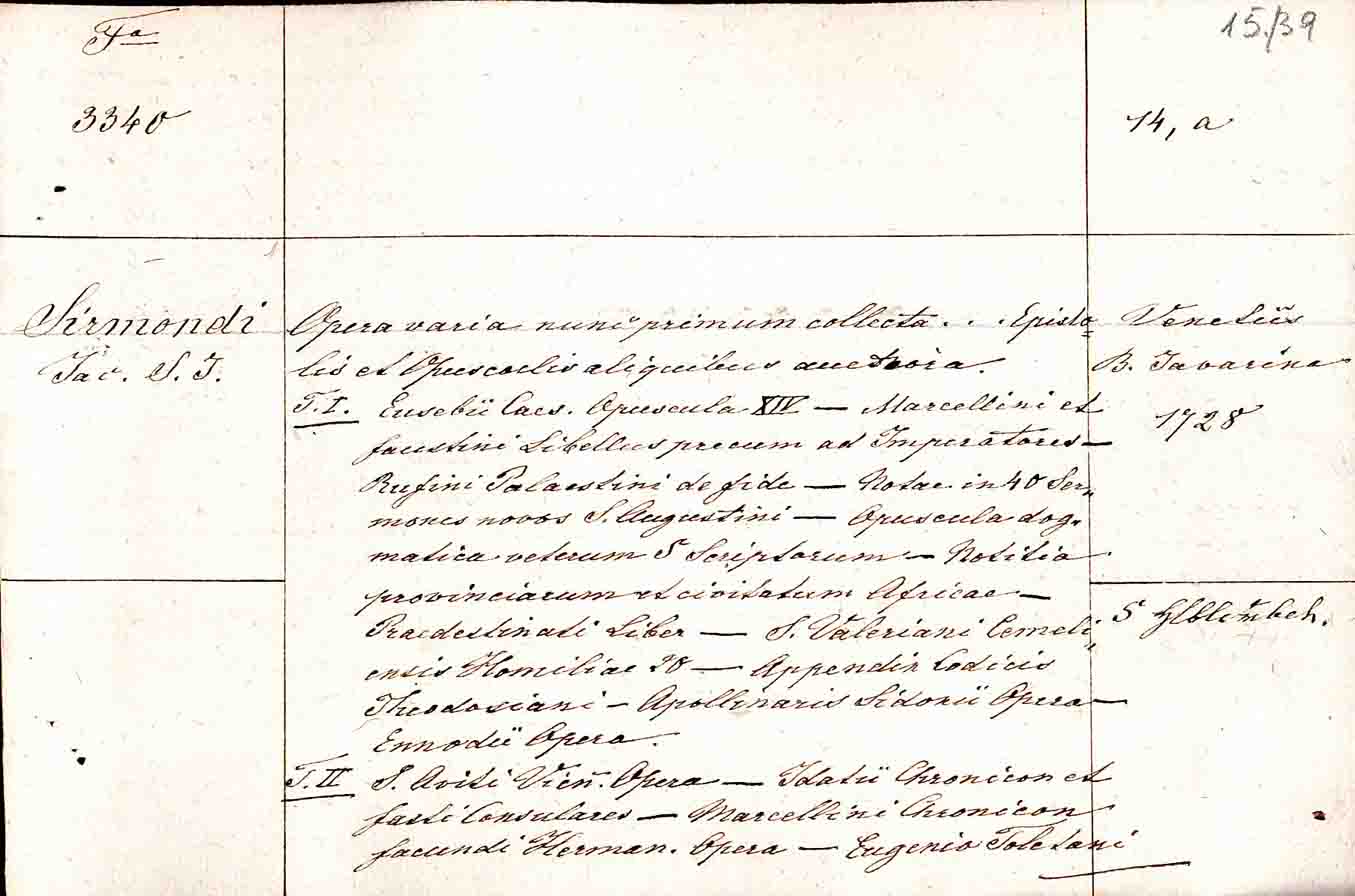 Fa
15./39
3340
14, a
Sirmondi
Jac. S. J.
Opera varia nunc primum collecta . . . Episto=
lis et Opusculis aliquibus auctiora.
T. I. Eusebii Caes. Opuscula XIV — Marcellini et
faustini Libellus precum ad Imperatores —
Rufini Palaestini de fide — Notae in 40 Ser„
mones novos S. Augustini — Opuscula dog„
matica veterum 5 Scriptorum — Notitia
provinciarum et civitatum Africae —
Praedestinati Liber — S. Valeriani Cemeli„
ensis Homiliae 20 — Appendix Codicis
Theodosiani — Apollinaris Sidonii Opera —
Ennodii Opera.
T. II S. Aviti Vien̄. Opera — Idatii Chronicon et
fasti Consulares — Marcellini Chronicon
facundi Herman. Opera — Eugenio Toletani
Venetiis
B. Javarina
1728
5